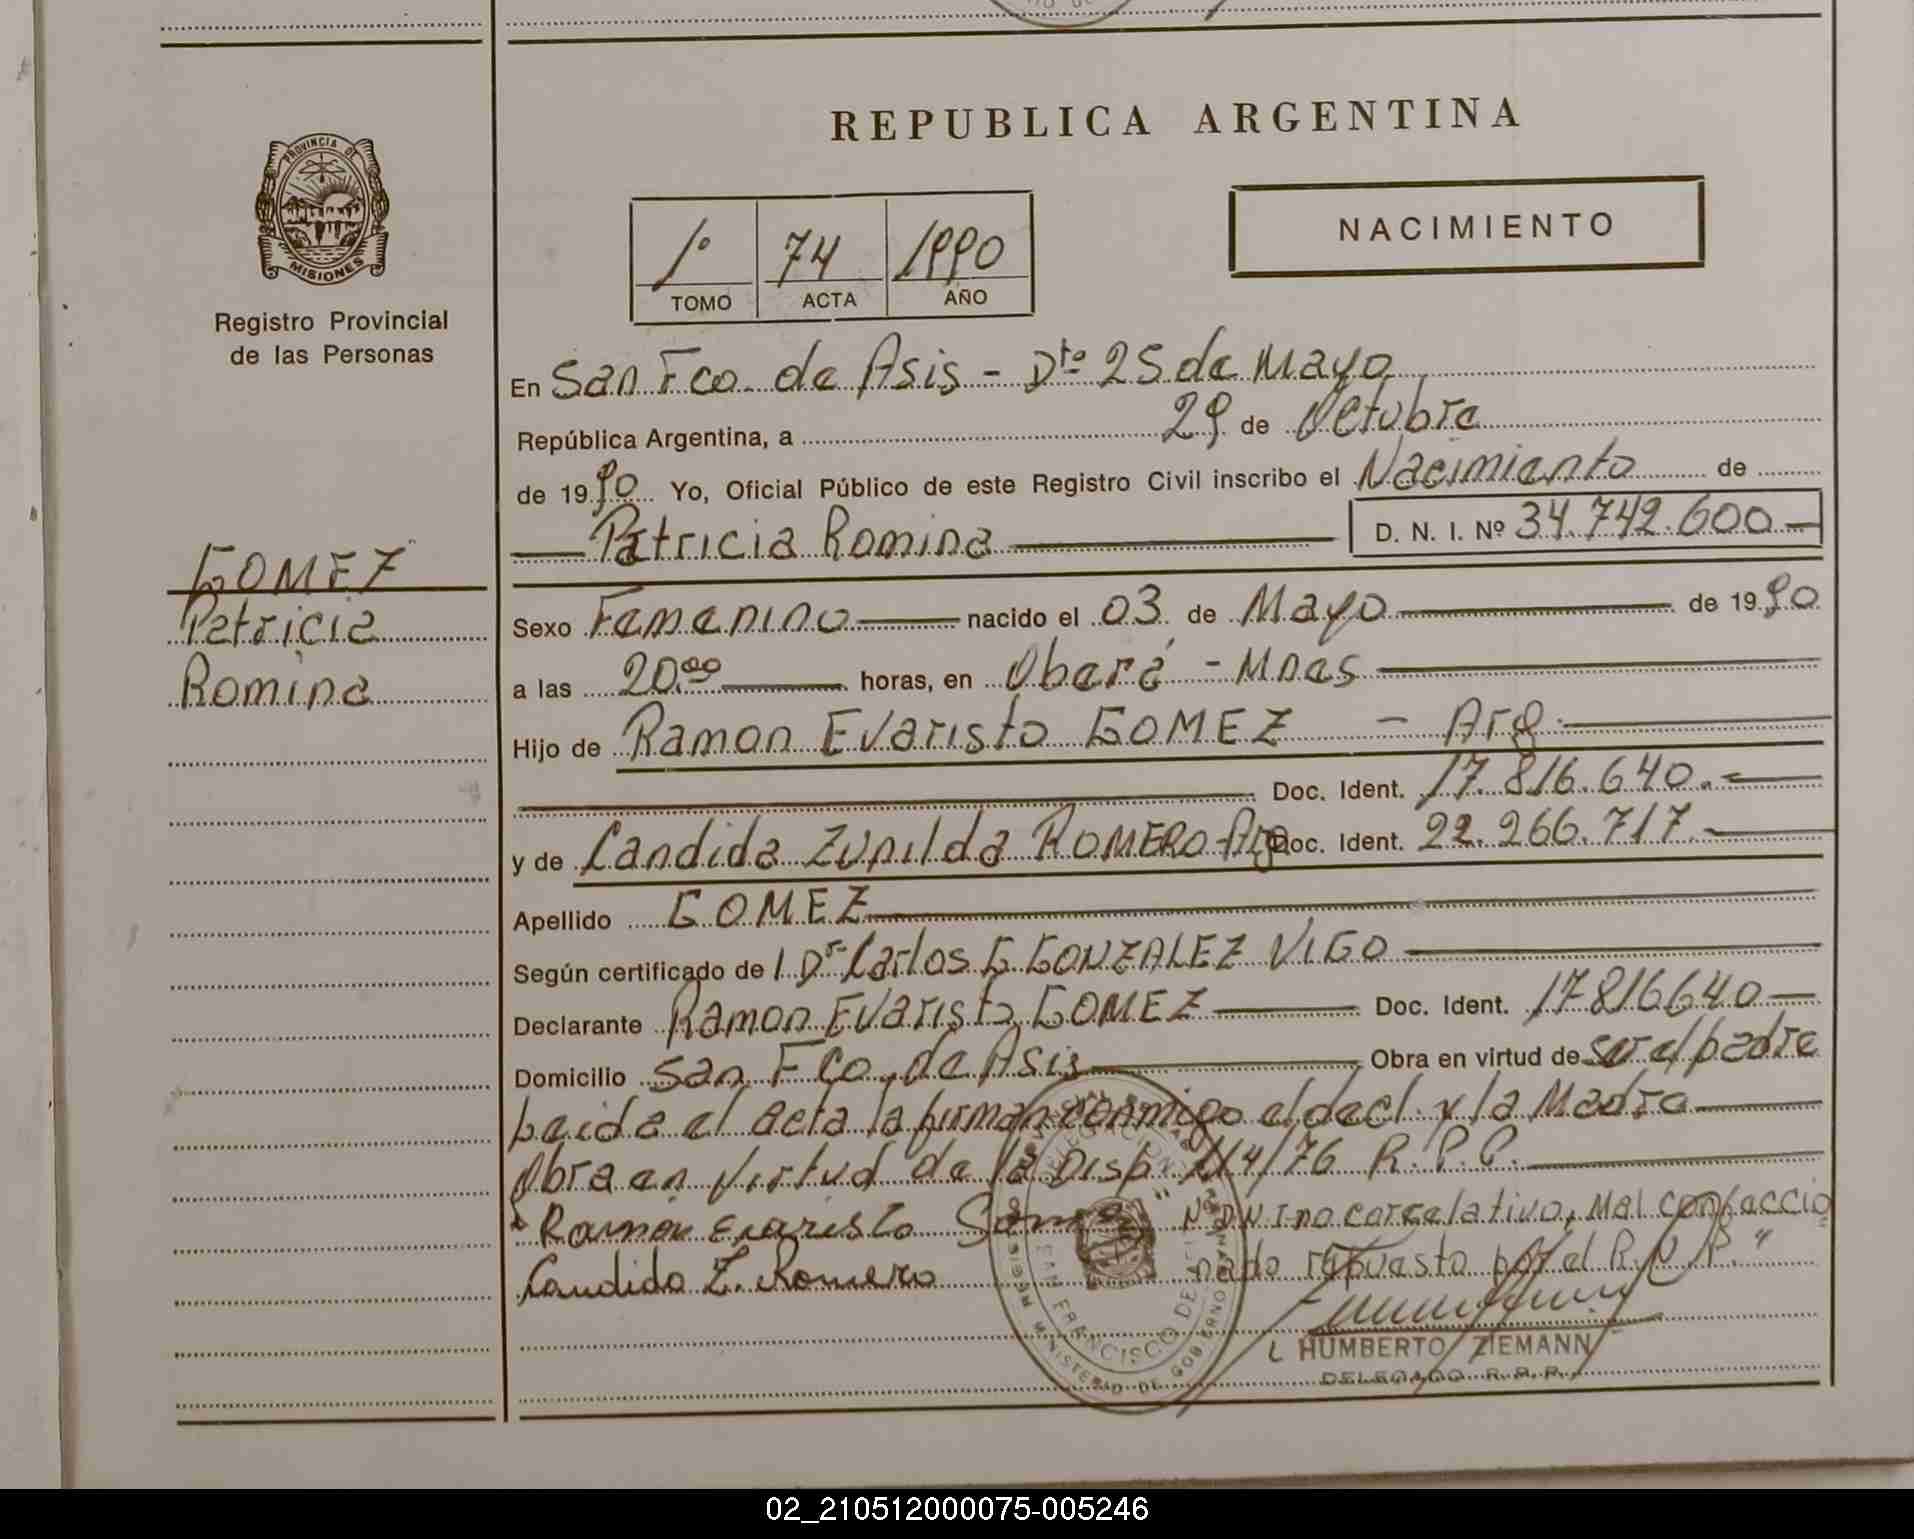 REPUBLICA ARGENTINA
PROVINCIA DE
MISIONES
Registro Provincial
de las Personas
1º 74 1990
TOMO ACTA AÑO
NACIMIENTO
En San Fco. de Asis - Dto 25 de Mayo
República Argentina, a 29 de Octubre
de 1990 Yo, Oficial Público de este Registro Civil inscribo el Nacimiento de
Patricia Romina D. N. I. Nº 34.742.600
GOMEZ
Patricia
Romina
Sexo Femenino nacido el 03 de Mayo de 1990
a las 20.00 horas, en Oberá - Mnes
Hijo de Ramon Evaristo GOMEZ - Arg.
Doc. Ident. 17.816.640.-
y de Candida Zunilda ROMERO-Arg Doc. Ident. 22.266.717.-
Apellido GOMEZ
Según certificado del Dr Carlos G GONZALEZ VIGO
Declarante Ramon Evaristo GOMEZ Doc. Ident. 17816640
Domicilio San Fco. de Asis Obra en virtud de ser el padre
Leida el acta la firman conmigo el decl. y la Madre
Obra en virtud de la Disp. 114/76 R.P.P.
Ramon Evaristo Gomez "Nº DNI no correlativo, mal confeccio
Candida Z. Romero nado repuesto por el R.N.P."
SAN FRANCISCO DE
MINISTERIO DE GOBIERNO
HUMBERTO ZIEMANN
DELEGADO R.P.P.
02_210512000075-005246